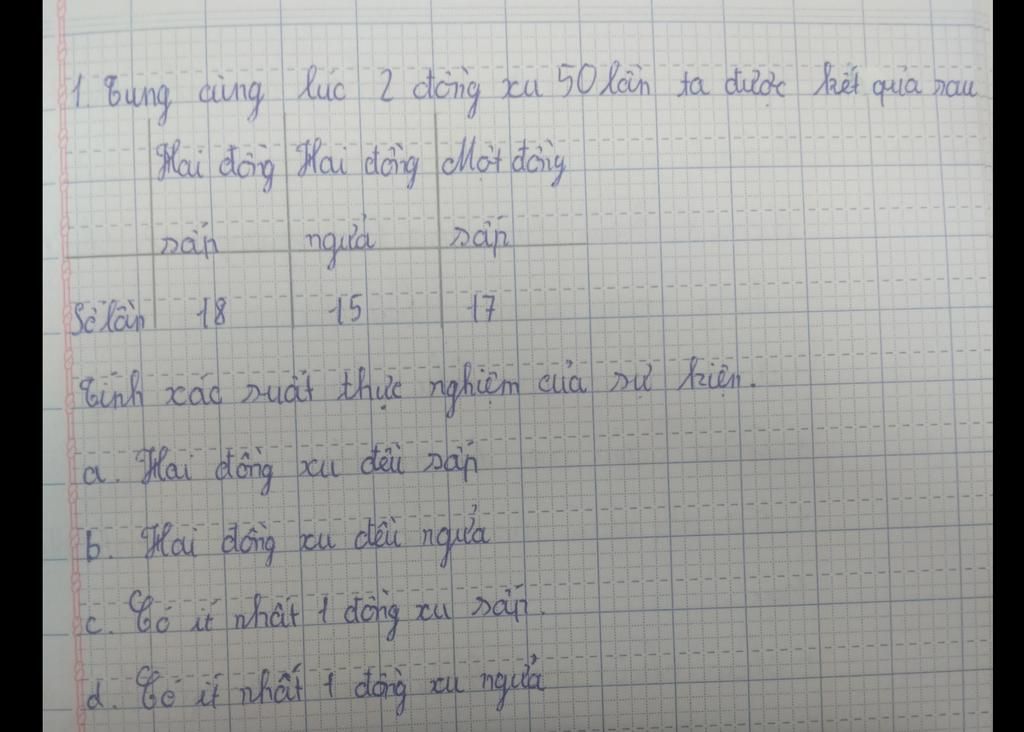 1. Tung cùng lúc 2 đồng xu 50 lần ta được kết quả sau
Hai đồng Hai đồng Một đồng
sấp ngửa sấp
Số lần 18 15 17
Tính xác suất thực nghiệm của sự kiện.
a. Hai đồng xu đều sấp
b. Hai đồng xu đều ngửa
c. Có ít nhất 1 đồng xu sấp.
d. Có ít nhất 1 đồng xu ngửa